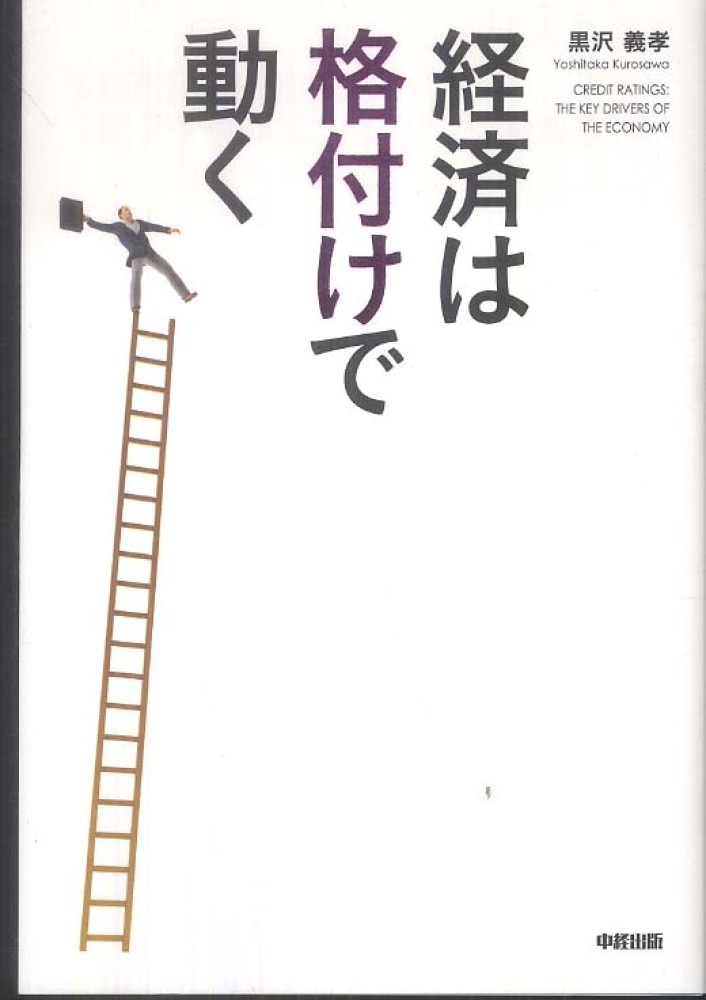 経済は
格付けで
動く
黒沢 義孝
Yoshitaka Kurosawa
CREDIT RATINGS:
THE KEY DRIVERS OF
THE ECONOMY
中経出版